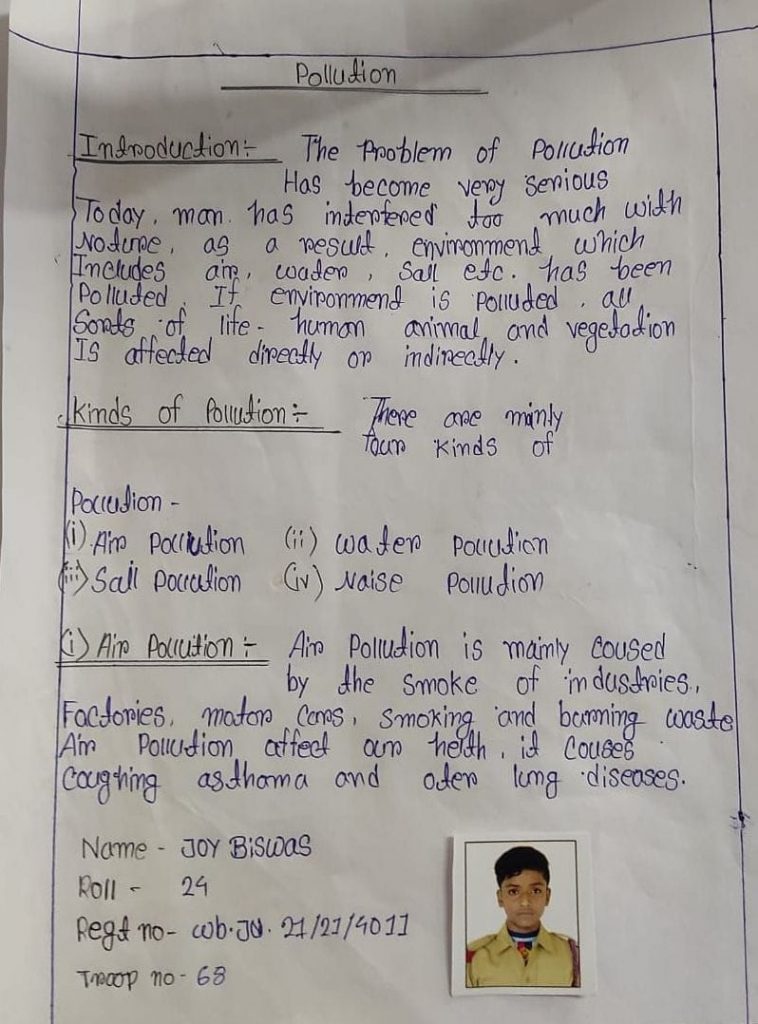 Pollution
Introduction:- The Problem of Pollution
Has become very serious
Today, man. has interfered too much with
Nature, as a result, environment which
Includes air, water, sail etc. has been
Polluted. If environment is polluted, all
Sorts of life - human animal and vegetation
IS affected directly or indirectly.
Kinds of Pollution:- There are mainly
four kinds of
Pollution -
(i) Air pollution (ii) water pollution
(iii) Sail pollution (iv) Naise pollution
(i) Air Pollution:- Air Pollution is mainly coused
by the smoke of industries,
Factories, motor cars, smoking and barning waste
Air Pollution affect our helth, it couses
coughing asthama and oter lung diseases.
Name - JOY BISWAS
Roll - 24
Regt no- wb.JU. 21/21/4011
Troop no - 68